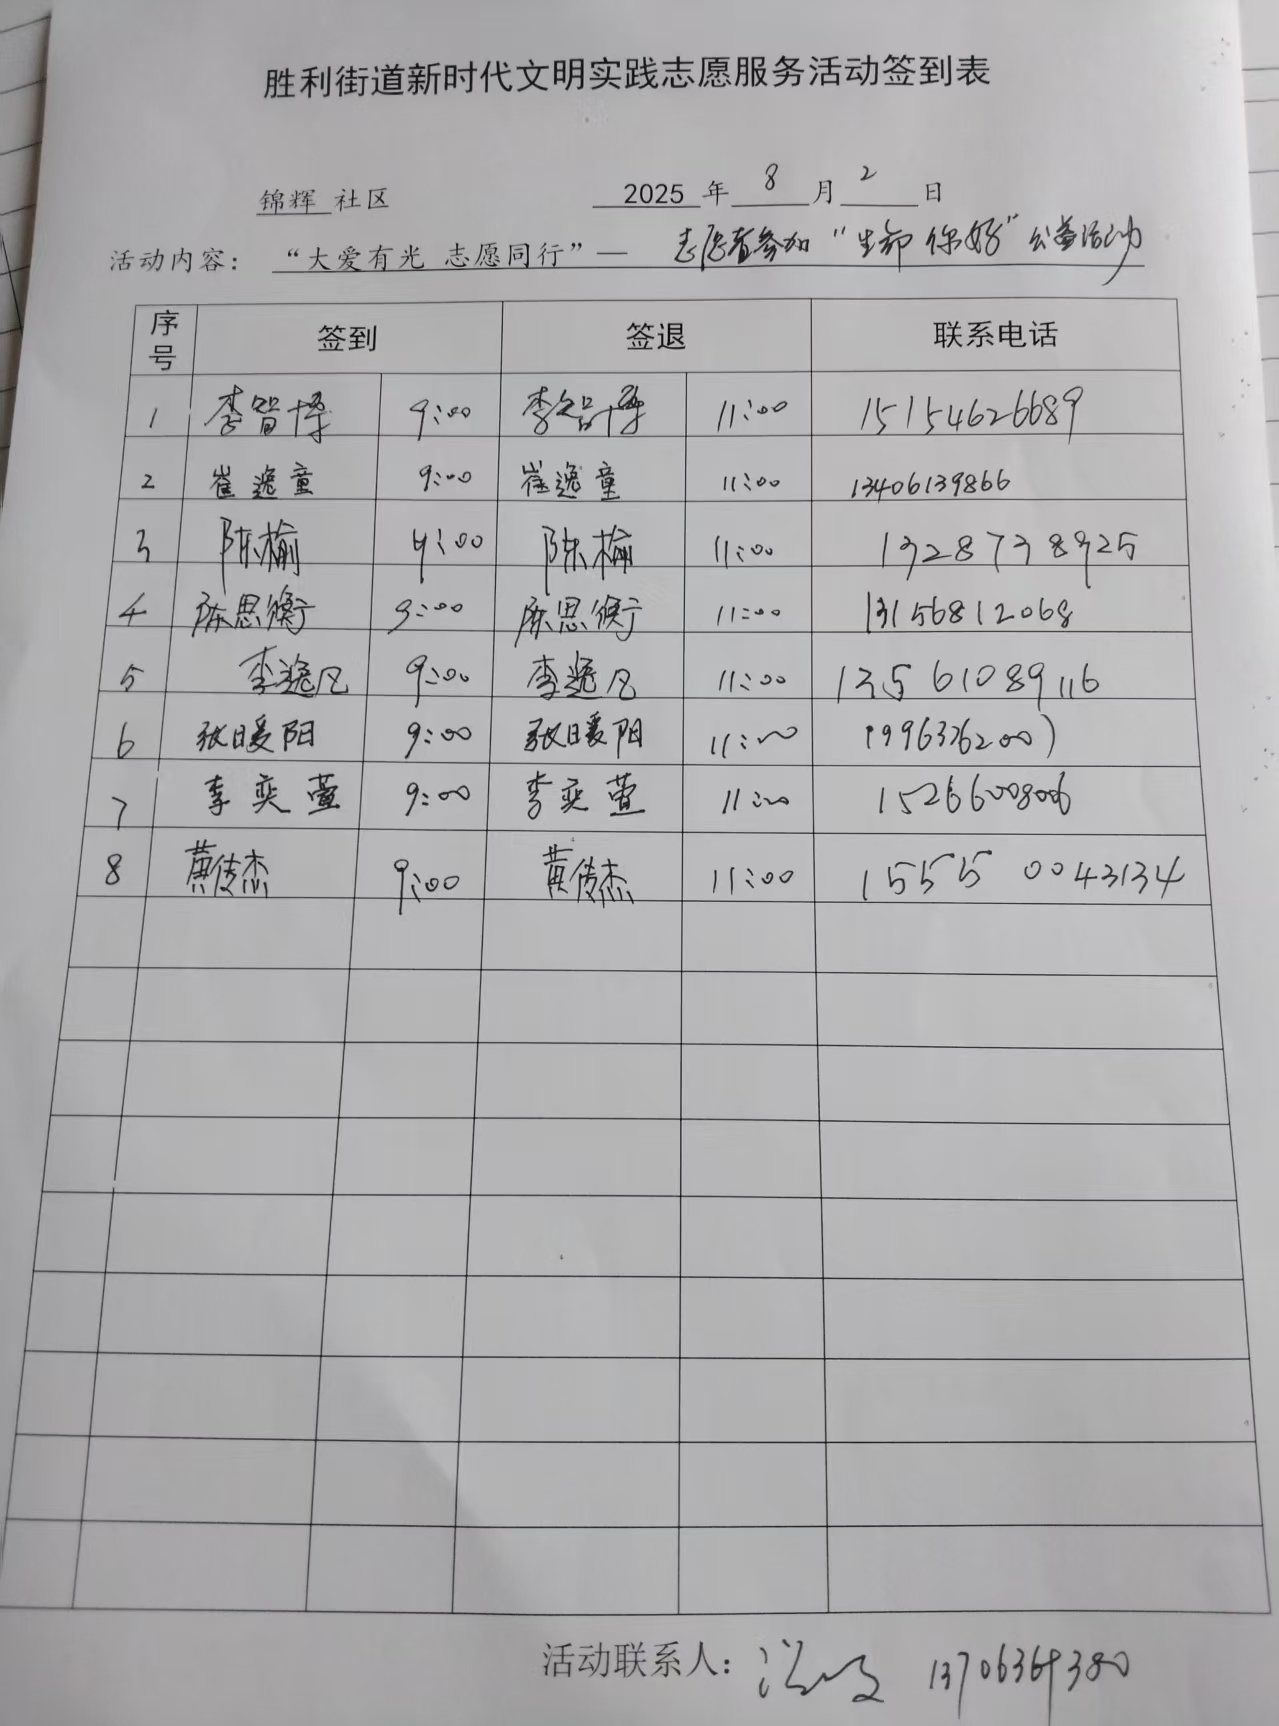 胜利街道新时代文明实践志愿服务活动签到表
锦辉 社区 2025 年 8 月 2 日
活动内容： “大爱有光 志愿同行”— 志愿者参加“生命 你好”公益活动
序号 签到 签退 联系电话
1 李智博 9:00 李智博 11:00 15154626689
2 崔逸童 9:00 崔逸童 11:00 13406139866
3 陈榆 9:00 陈榆 11:00 13287378925
4 陈思衡 9:00 陈思衡 11:00 13156812068
5 李逸凡 9:00 李逸凡 11:00 13561089116
6 张暖阳 9:00 张暖阳 11:00
7 李奕萱 9:00 李奕萱 11:00 15266600806
8 黄传杰 9:00 黄传杰 11:00 15550043134
活动联系人： 13706364380